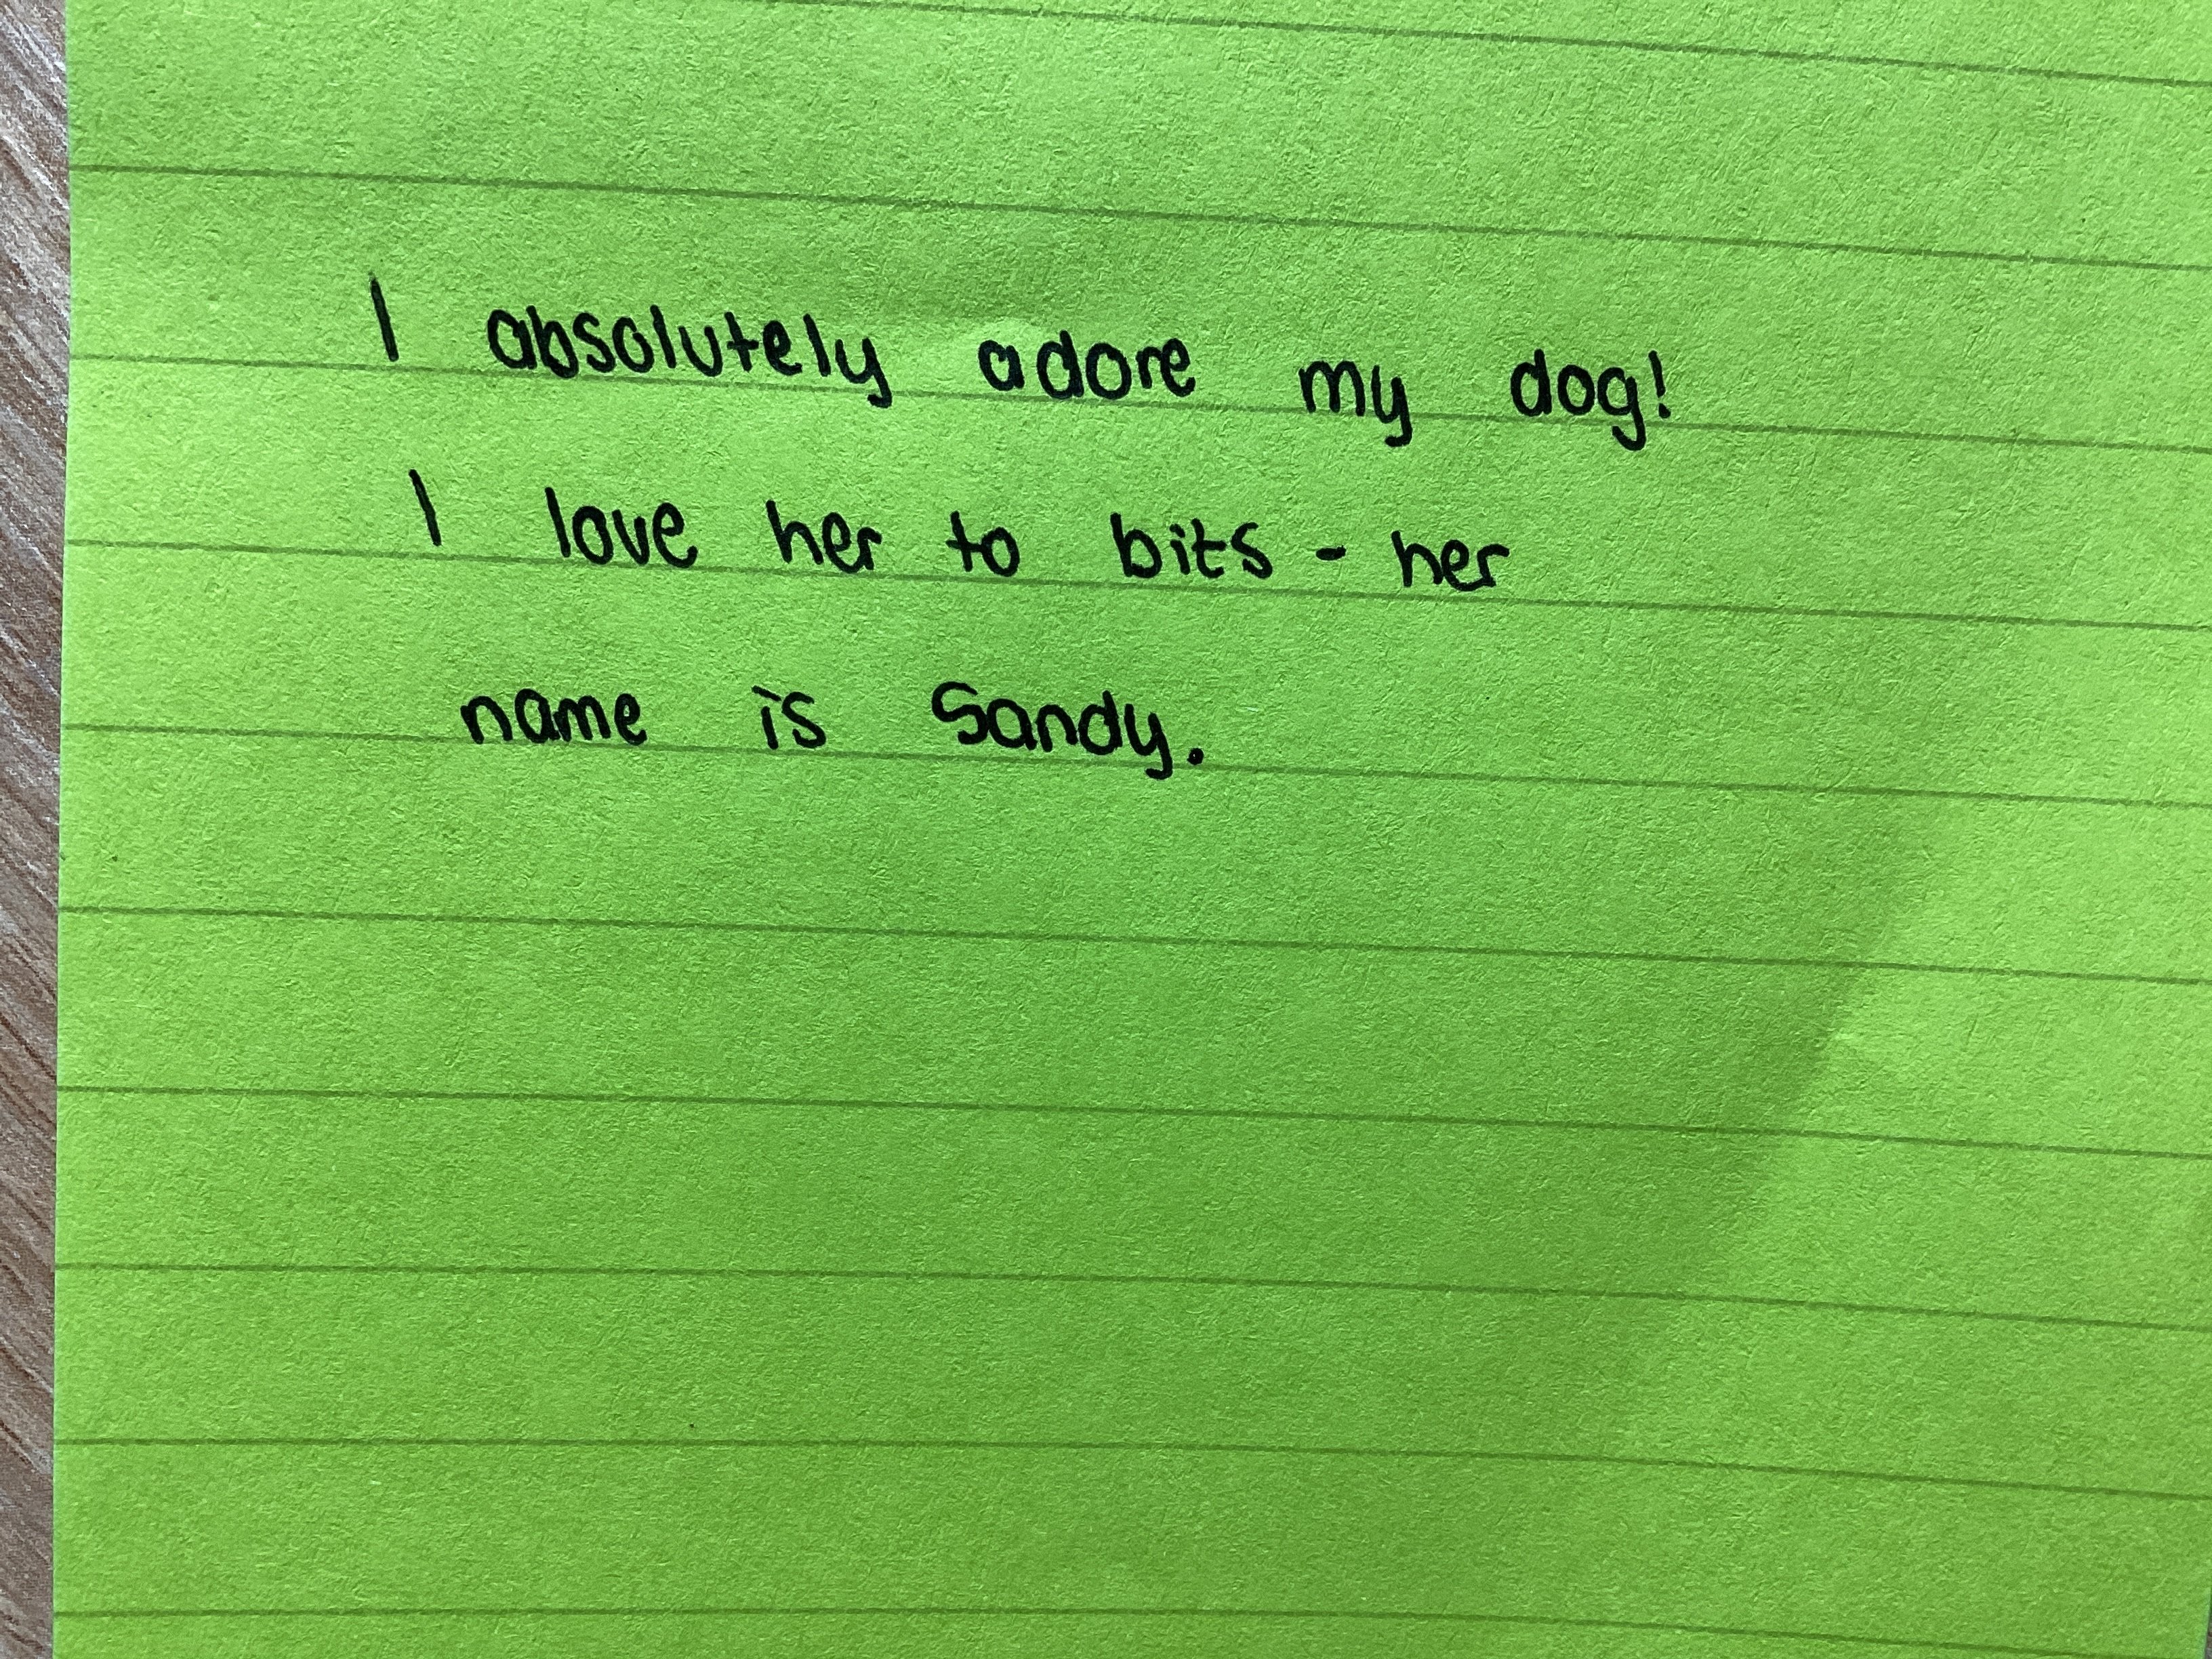 I absolutely adore my dog!
I love her to bits - her
name is Sandy.